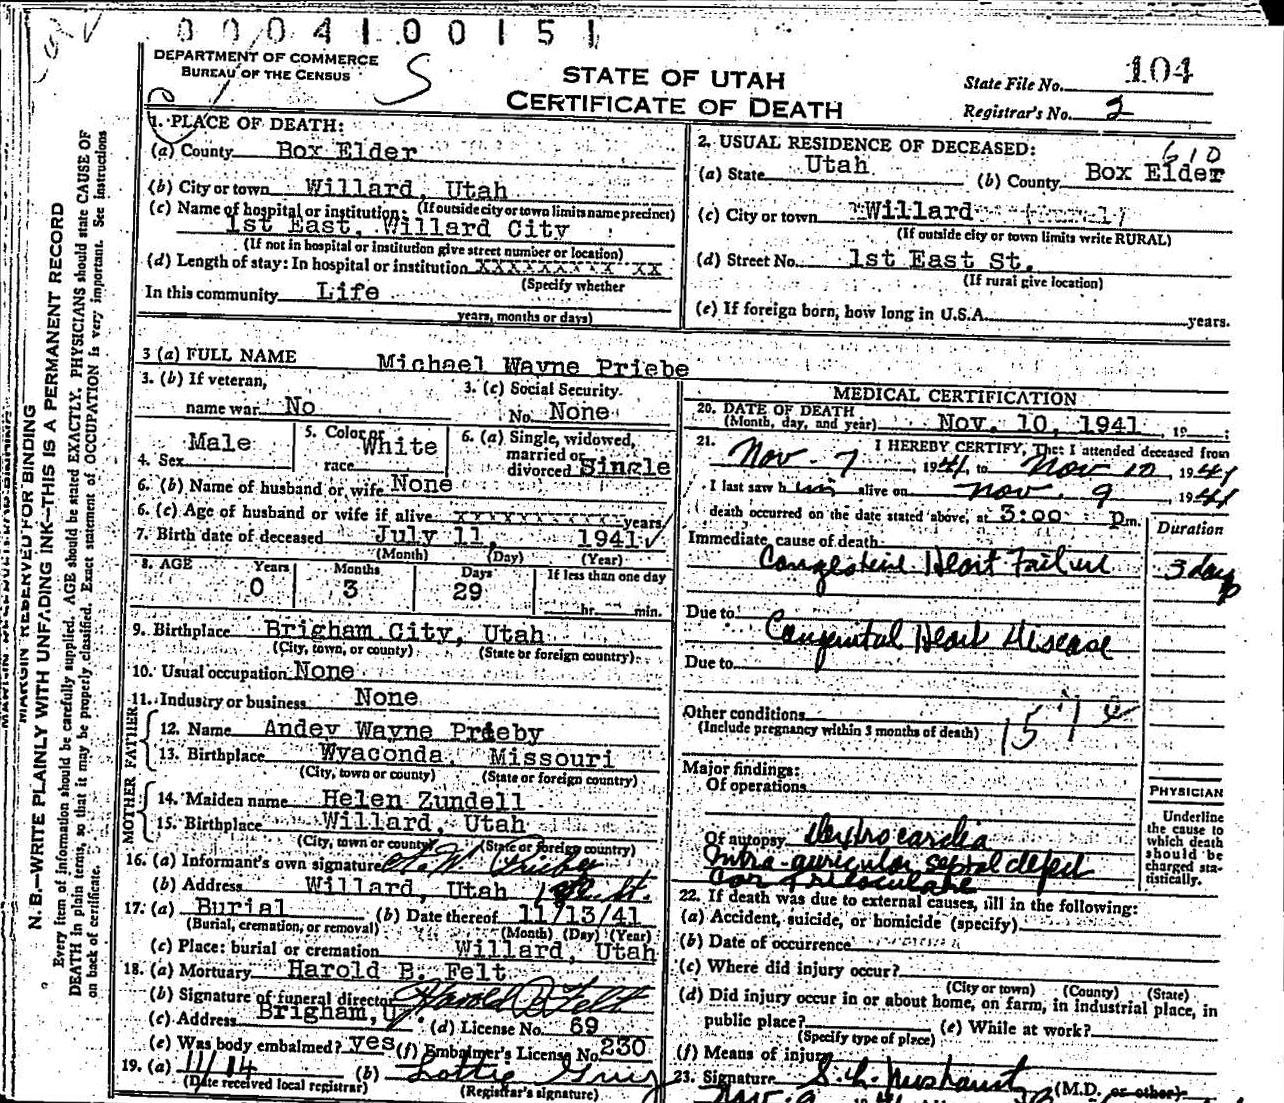 0004100151
DEPARTMENT OF COMMERCE
BUREAU OF THE CENSUS
S
STATE OF UTAH
CERTIFICATE OF DEATH
State File No. 104
Registrar's No. 2
MARGIN RESERVED FOR BINDING
N. B.—WRITE PLAINLY WITH UNFADING INK—THIS IS A PERMANENT RECORD
Every item of information should be carefully supplied. AGE should be stated EXACTLY. PHYSICIANS should state CAUSE OF
DEATH in plain terms, so that it may be properly classified. Exact statement of OCCUPATION is very important. See instructions
on back of certificate.
1. PLACE OF DEATH:
(a) County Box Elder
(b) City or town Willard, Utah
(If outside city or town limits name precinct)
(c) Name of hospital or institution:
1st East, Willard City
(If not in hospital or institution give street number or location)
(d) Length of stay: In hospital or institution XXXXXXXX XX
(Specify whether
In this community Life
years, months or days)
2. USUAL RESIDENCE OF DECEASED:
610
(a) State Utah (b) County Box Elder
(c) City or town Willard (Rural)
(If outside city or town limits write RURAL)
(d) Street No. 1st East St.
(If rural give location)
(e) If foreign born, how long in U.S.A. years.
3 (a) FULL NAME Michael Wayne Priebe
3. (b) If veteran,
name war No
3. (c) Social Security
No. None
4. Sex Male
5. Color or
race White
6. (a) Single, widowed,
married or
divorced Single
6. (b) Name of husband or wife None
6. (c) Age of husband or wife if alive xxxxxxxxxxxx years
7. Birth date of deceased July 11, 1941
(Month) (Day) (Year)
8. AGE Years Months Days If less than one day
0 3 29 hr. min.
9. Birthplace Brigham City, Utah
(City, town, or county) (State or foreign country)
10. Usual occupation None
11. Industry or business None
FATHER
12. Name Andey Wayne Prieby
13. Birthplace Wyaconda, Missouri
(City, town or county) (State or foreign country)
MOTHER
14. Maiden name Helen Zundell
15. Birthplace Willard, Utah
(City, town or county) (State or foreign country)
16. (a) Informant's own signature A. W. Prieby
(b) Address Willard, Utah
17. (a) Burial (b) Date thereof 11/13/41
(Burial, cremation, or removal) (Month) (Day) (Year)
(c) Place: burial or cremation Willard, Utah
18. (a) Mortuary Harold B. Felt
(b) Signature of funeral director Harold B Felt
(c) Address Brigham, U (d) License No. 69
(e) Was body embalmed? yes (f) Embalmer's License No. 230
19. (a) 11/14 (b) Lottie
(Date received local registrar) (Registrar's signature)
MEDICAL CERTIFICATION
20. DATE OF DEATH
(Month, day, and year) Nov. 10, 1941, 19
21. I HEREBY CERTIFY, That I attended deceased from
Nov. 7, 1941, to Nov 10, 1941
I last saw him alive on Nov. 9 1941
death occurred on the date stated above, at 3:00 Pm.
Duration
Immediate cause of death
Congestive Heart Failure 3 days
Due to Congenital Heart Disease
Due to
Other conditions
(Include pregnancy within 3 months of death)
157e
Major findings:
Of operations
Of autopsy dextrocardia
Intra-auricular septal defect
Cor Triloculare
PHYSICIAN
Underline
the cause to
which death
should be
charged sta-
tistically.
22. If death was due to external causes, fill in the following:
(a) Accident, suicide, or homicide (specify)
(b) Date of occurrence
(c) Where did injury occur?
(City or town) (County) (State)
(d) Did injury occur in or about home, on farm, in industrial place, in
public place? (e) While at work?
(Specify type of place)
(f) Means of injury
23. Signature (M.D. or other)